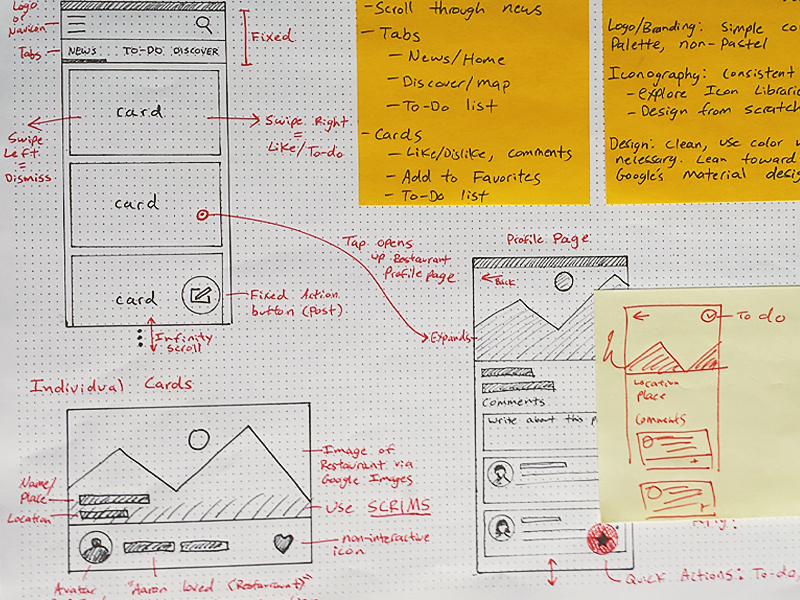 Logo
or
Navicon
Tabs
NEWS TO-DO DISCOVER
Fixed
card
Swipe
Left
=
Dismiss
Swipe Right
=
Like/To-do
card
card
Tap opens
up Restaurant
Profile page
Fixed Action
button (Post)
Infinity
Scroll
Expands
-Scroll through news
- Tabs
- News/Home
- Discover/map
- To-Do list
- Cards
- Like/Dislike, comments
- Add to Favorites
- To-Do list
Logo/Branding: Simple co
Palette, non-Pastel
Iconography: consistent
- explore Icon Librarie
- Design from scratch
Design: Clean, use color w
necessary. Lean toward
Google's material desig
Profile Page
Back
Comments
Write about this p
To do
Location
place
Comments
Quick Actions: To-do,
Individual Cards
Name/
Place
Location
Image of
Restaurant via
Google Images
Use SCRIMS
non-interactive
icon
Avatar
"Aaron loved (Restaurant)"